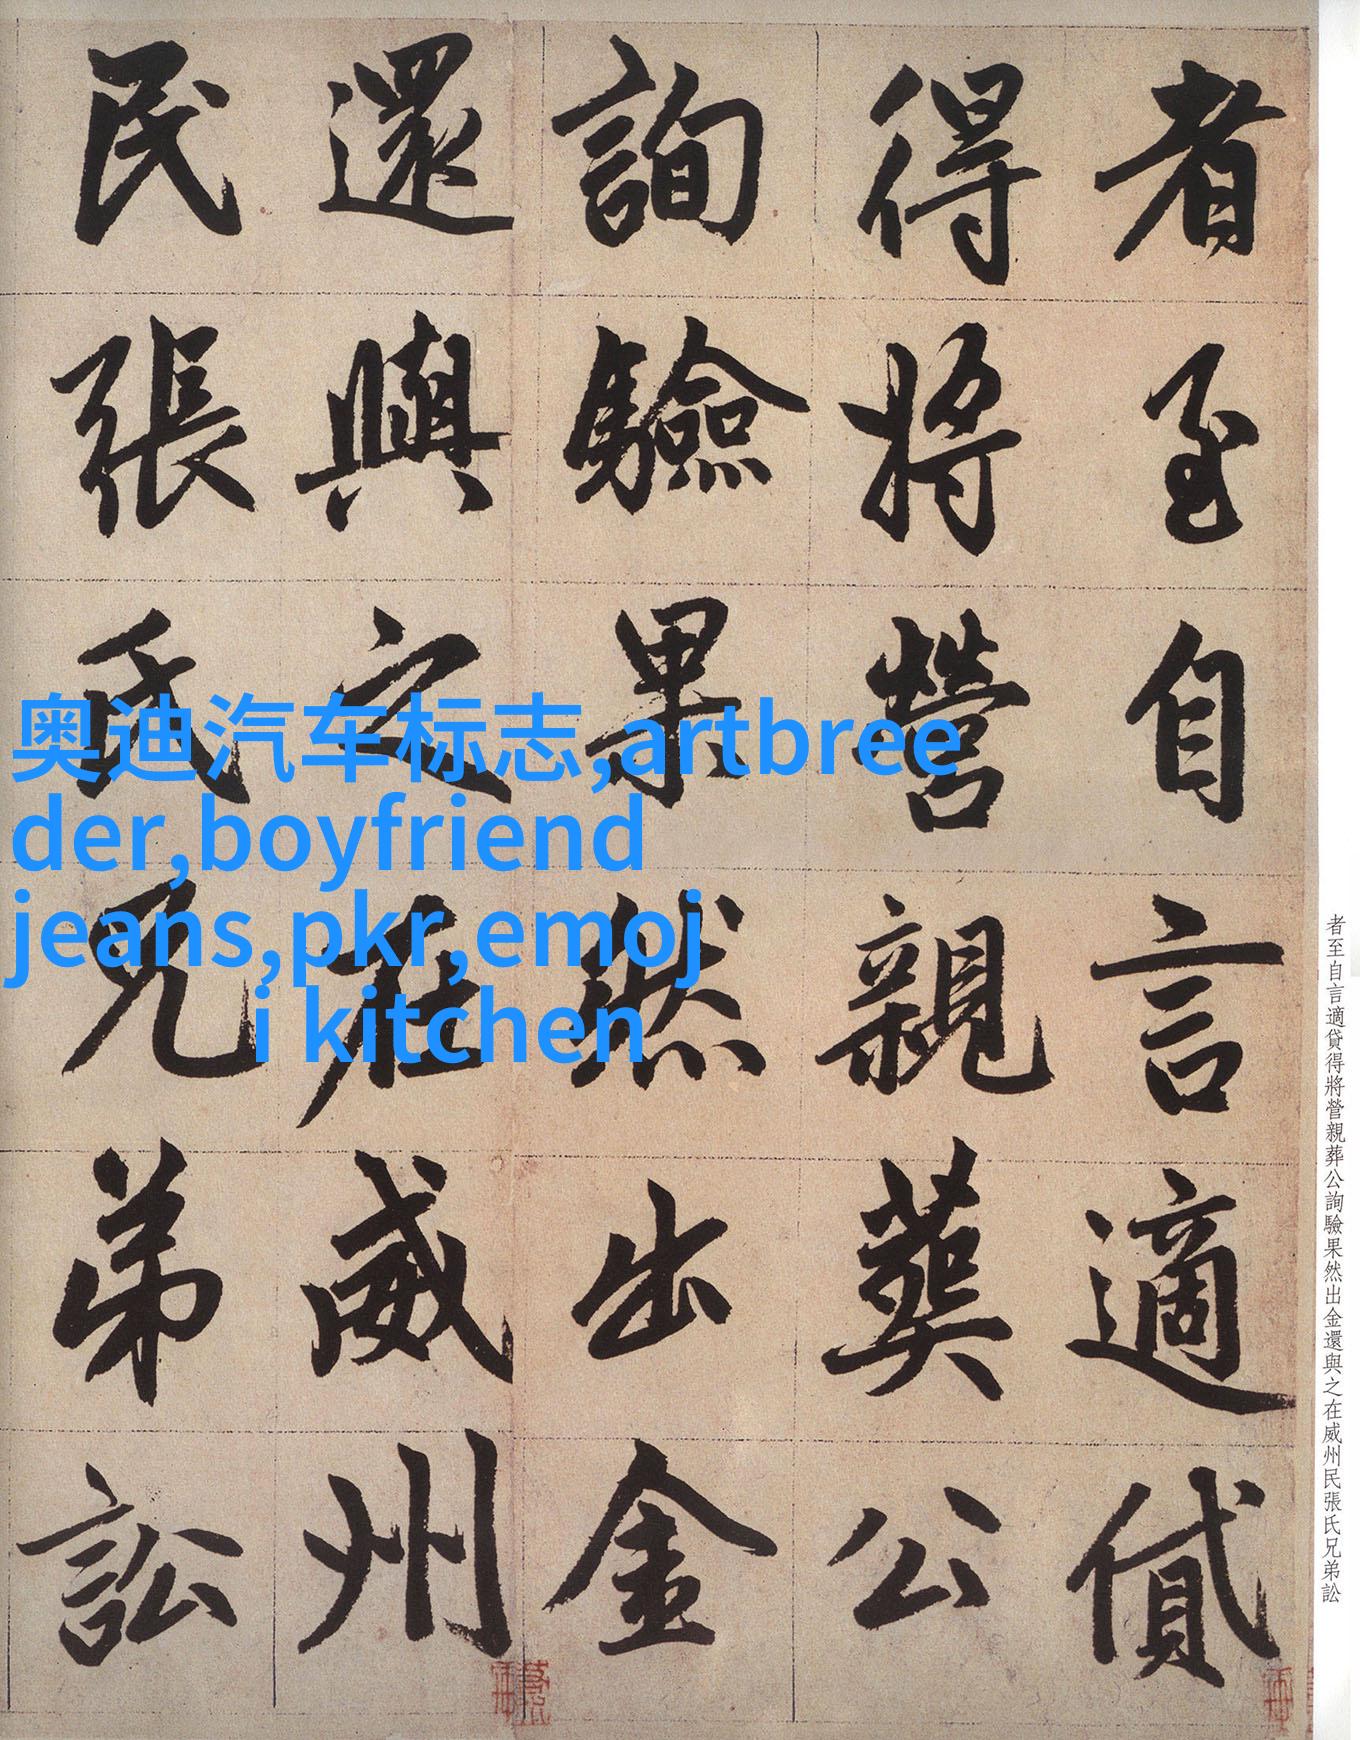 者至自言適貸
得將營親葬公
詢驗果然出金
還與之在威州
民張氏兄弟訟
奥迪汽车标志,artbree
der,boyfriend
jeans,pkr,emoj
i kitchen
者至自言適貸得將營親葬公詢驗果然出金還與之在威州民張氏兄弟訟